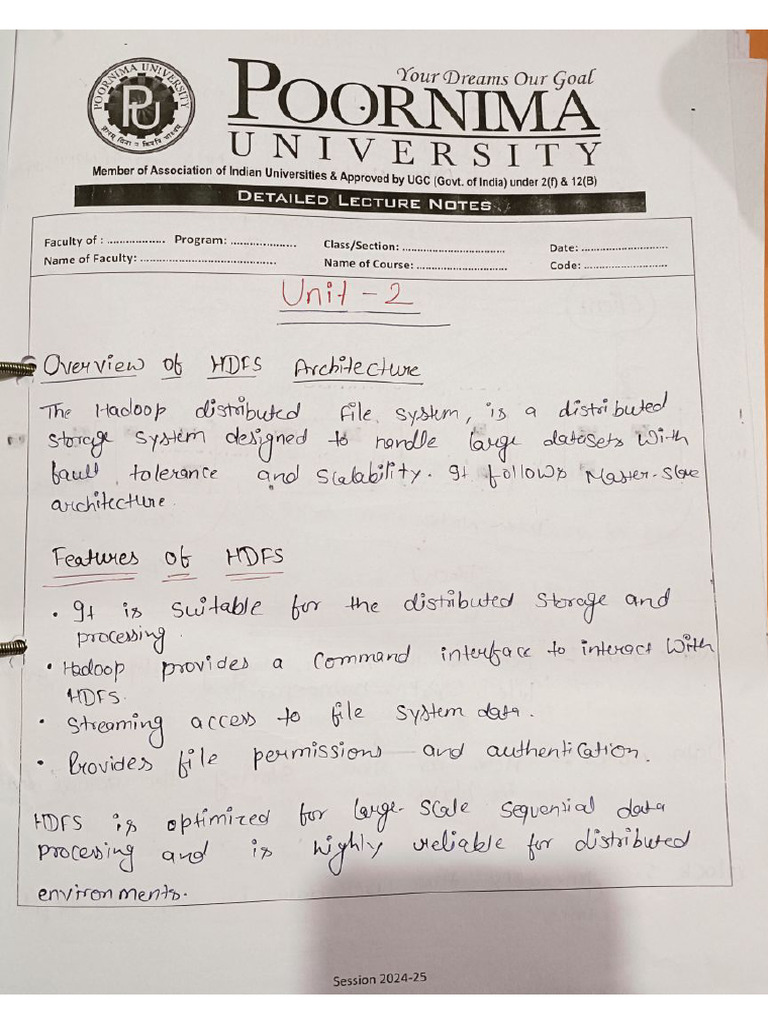 Your Dreams Our Goal
POORNIMA UNIVERSITY
PU
POORNIMA
UNIVERSITY
Member of Association of Indian Universities & Approved by UGC (Govt. of India) under 2(f) & 12(B)
DETAILED LECTURE NOTES
Faculty of : .................. Program: .................... Class/Section: ................................ Date: ...........................
Name of Faculty: .......................................... Name of Course: ............................ Code: ..........................
Unit - 2
Overview of HDFS Architecture
The Hadoop distributed file system, is a distributed
storage system designed to handle large datasets with
fault tolerance and scalability. It follows Master-Slave
architecture.
Features of HDFS
• It is suitable for the distributed storage and
processing.
• Hadoop provides a command interface to interact with
HDFS.
• Streaming access to file system data.
• Provides file permissions and authentication.
HDFS is optimized for large-scale sequential data
processing and is highly reliable for distributed
environments.
Session 2024-25